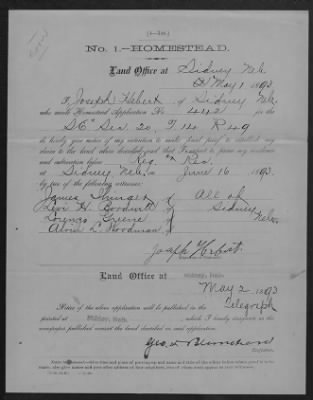 (4—348.)
No. 1.—HOMESTEAD.
Land Office at Sidney Neb.
May 1, 1893
I, Joseph Hebert, of Sidney Neb.
who made Homestead Application No. 442 for the
SE¼ Sec 20, T 14 R 49
do hereby give notice of my intention to make final proof to establish my
claim to the land above described, and that I expect to prove my residence
and cultivation before Reg. & Rec.
at Sidney, Neb. on June 16, 1893,
by two of the following witnesses:
James
Levi H. Goodwill
Greene
Alvin L. Woodman
All of
Sidney
Neb.
Joseph Herbert
Land Office at Sidney, Neb.
May 2, 1893
Notice of the above application will be published in the Telegraph
printed at Sidney, Neb., which I hereby designate as the
newspaper published nearest the land described in said application.
Geo. W. Blanchard
Register.